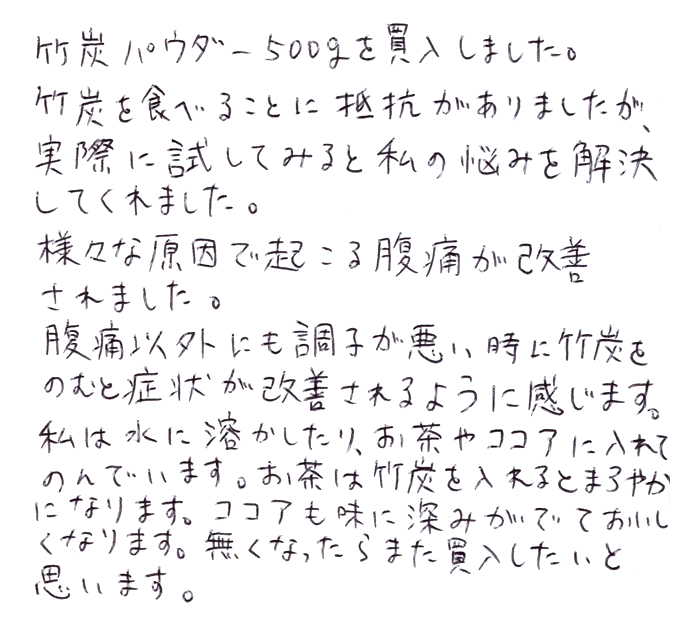 竹炭パウダー500gを買入しました。
竹炭を食べることに抵抗がありましたが、
実際に試してみると私の悩みを解決
してくれました。
様々な原因で起こる腹痛が改善
されました。
腹痛以外にも調子が悪い時に竹炭を
のむと症状が改善されるように感じます。
私は水に溶かしたり、お茶やココアに入れて
のんでいます。お茶は竹炭を入れるとまろやか
になります。ココアも味に深みがでておいし
くなります。無くなったらまた買入したいと
思います。